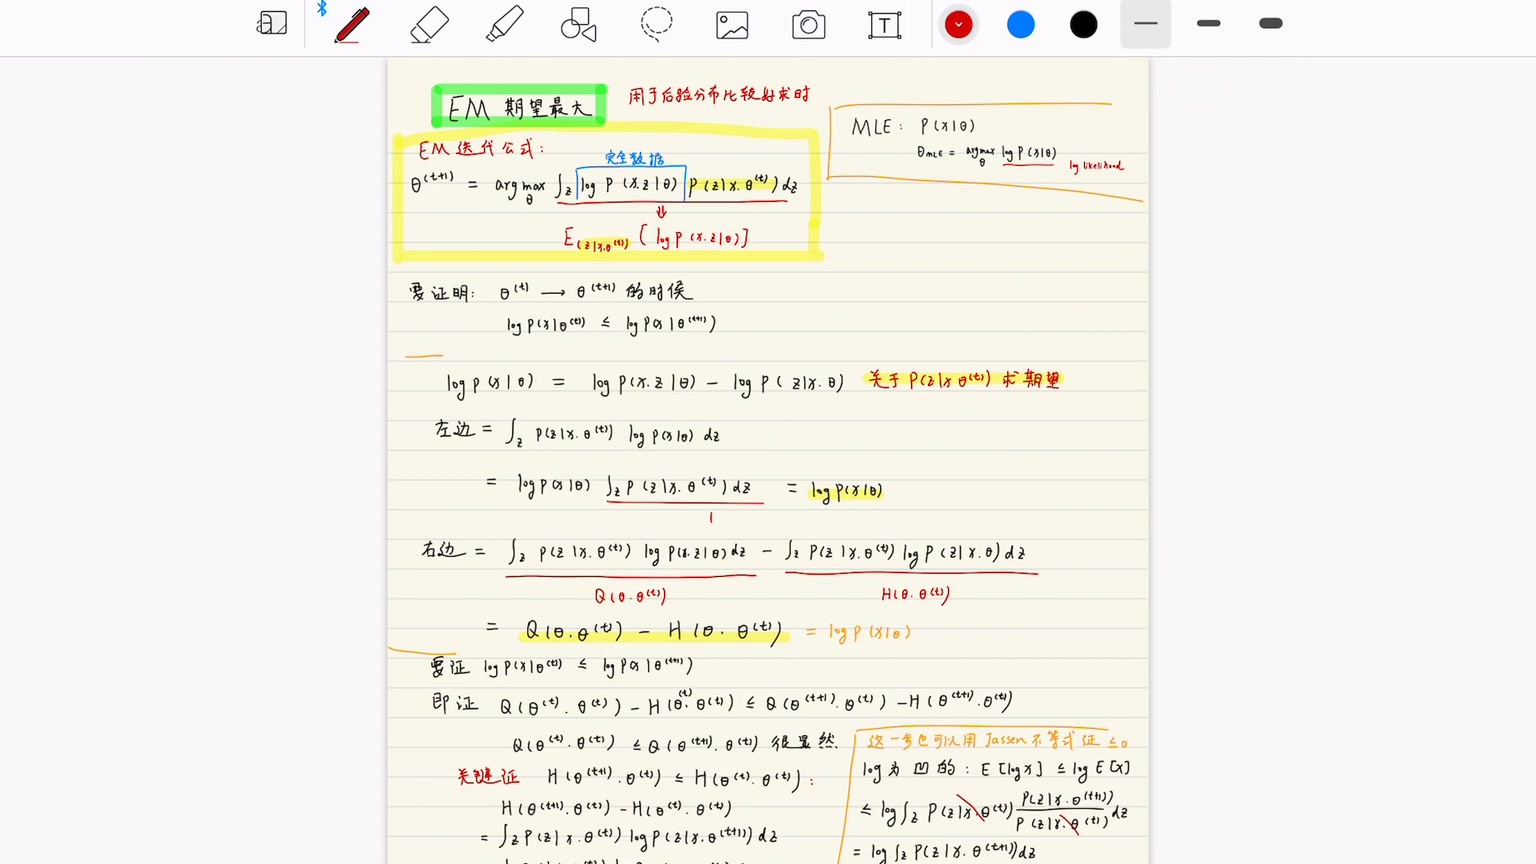 EM 期望最大
用于后验分布比较好求时
MLE: P(x|θ)
θMLE = argmax_θ log P(x|θ)
log likelihood
EM 迭代公式:
完全数据
θ^(t+1) = argmax_θ ∫_z log P(x.z|θ) P(z|x.θ^(t)) dz
⇓
E_(z|x.θ^(t)) [log P(x.z|θ)]
要证明: θ^(t) → θ^(t+1) 的时候
log P(x|θ^(t)) ≤ log P(x|θ^(t+1))
log P(x|θ) = log P(x.z|θ) - log P(z|x.θ) 关于 P(z|x θ^(t)) 求期望
左边 = ∫_z P(z|x.θ^(t)) log P(x|θ) dz
= log P(x|θ) ∫_z P(z|x.θ^(t)) dz = log P(x|θ)
1
右边 = ∫_z P(z|x.θ^(t)) log P(x.z|θ) dz - ∫_z P(z|x.θ^(t)) log P(z|x.θ) dz
Q(θ.θ^(t)) H(θ.θ^(t))
= Q(θ.θ^(t)) - H(θ.θ^(t)) = log P(x|θ)
要证 log P(x|θ^(t)) ≤ log P(x|θ^(t+1))
即证 Q(θ^(t).θ^(t)) - H(θ^(t).θ^(t)) ≤ Q(θ^(t+1).θ^(t)) - H(θ^(t+1).θ^(t))
Q(θ^(t).θ^(t)) ≤ Q(θ^(t+1).θ^(t)) 很显然.
关键证 H(θ^(t+1).θ^(t)) ≤ H(θ^(t).θ^(t)):
H(θ^(t+1).θ^(t)) - H(θ^(t).θ^(t))
= ∫_z P(z|x.θ^(t)) log P(z|x.θ^(t+1)) dz
这一步也可以用 Jassen 不等式证 ≤0
log为凹的: E[log x] ≤ log E[x]
≤ log ∫_z P(z|x.θ^(t)) P(z|x.θ^(t+1)) / P(z|x.θ^(t)) dz
= log ∫_z P(z|x.θ^(t+1)) dz